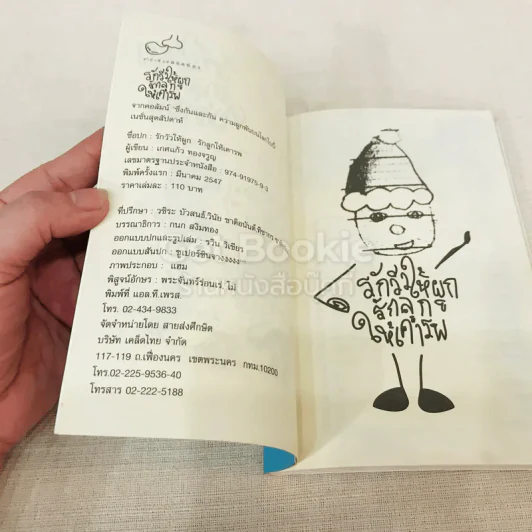 รักวัวให้ผูก
รักลูก
ให้เคารพ
จากคอลัมน์ "ซึ่งกันและกัน ความผูกพันบนโลกใบนี้
เนชั่นสุดสัปดาห์
ชื่อปก : รักวัวให้ผูก รักลูกให้เคารพ
ผู้เขียน : เกศแก้ว ทองจรูญ
เลขมาตรฐานประจำหนังสือ : 974-91975-9-3
พิมพ์ครั้งแรก : มีนาคม 2547
ราคาเล่มละ : 110 บาท
ที่ปรึกษา : วชิระ บัวสนธ์.วินัย ชาติอนันต์.พิชากร
บรรณาธิการ : กนก สงิมทอง
ออกแบบปกและรูปเล่ม : รวิน วิเขียว
ออกแบบสันปก : ซูเปอร์ซินจางงงงงง
ภาพประกอบ : แฮม
พิสูจน์อักษร : พระจันทร์ร่อนเร่, โม่
พิมพ์ที่ แอล.ที.เพรส.
โทร. 02-434-9833
จัดจำหน่ายโดย สายส่งศึกษิต
บริษัท เคล็ดไทย จำกัด
117-119 ถ.เฟื่องนคร เขตพระนคร กทม.10200
โทร.02-225-9536-40
โทรสาร 02-222-5188
รักวัวให้ผูก
รักลูก
ให้เคารพ
Bookie
ร้านหนังสือบุ๊กกี้